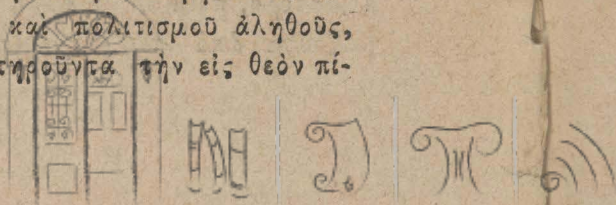 καὶ πολιτισμοῦ ἀληθοῦς,
τηροῦντα τὴν εἰς θεὸν πί-